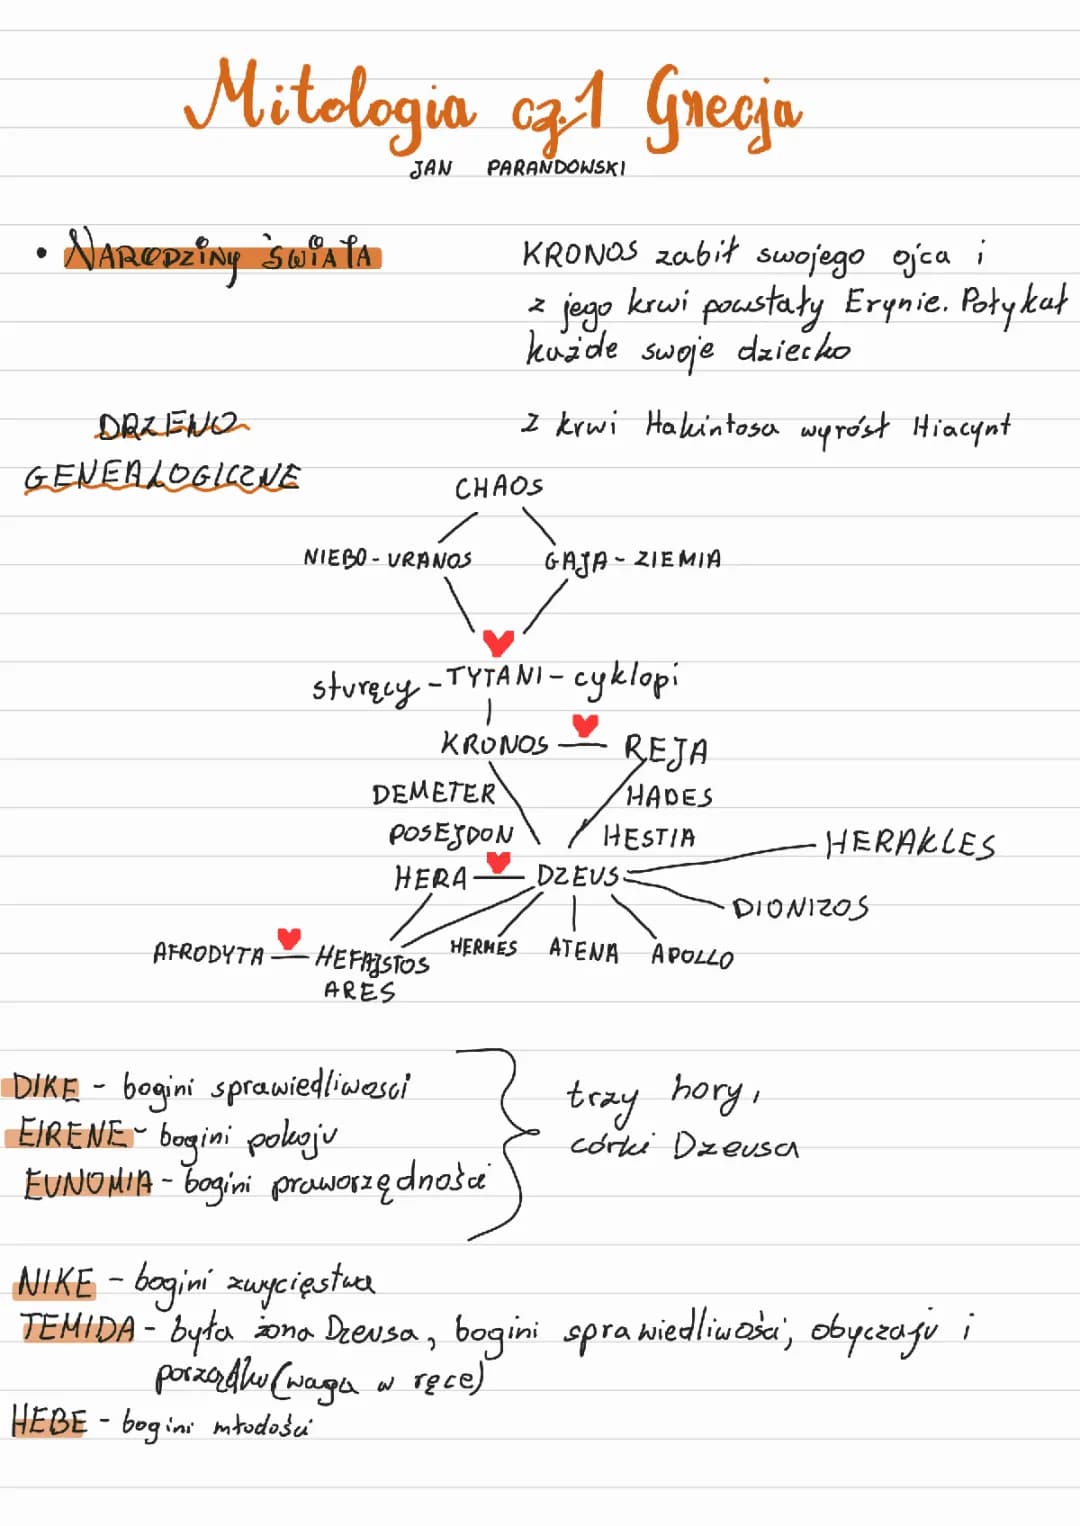 Mitologia cz.1 Grecja
JAN PARANDOWSKI
• NARODZINY ŚWIATA
KRONOS zabił swojego ojca i
z jego krwi powstały Erynie. Połykał
każde swoje dziecko
DRZEWO
GENEALOGICZNE
Z krwi Hakintosa wyrósł Hiacynt
CHAOS
NIEBO - URANOS
GAJA - ZIEMIA
sturęcy - TYTANI - cyklopi
KRONOS — REJA
DEMETER
HADES
POSEJDON
HESTIA
HERAKLES
HERA — DZEUS
DIONIZOS
AFRODYTA — HEFAJSTOS
HERMES
ATENA
APOLLO
ARES
DIKE - bogini sprawiedliwości
EIRENE - bogini pokoju
EUNOMIA - bogini praworządności
trzy hory,
córki Dzeusa
NIKE - bogini zwycięstwa
TEMIDA - była żona Dzeusa, bogini sprawiedliwości, obyczaju i
porządku (waga w ręce)
HEBE - bogini młodości